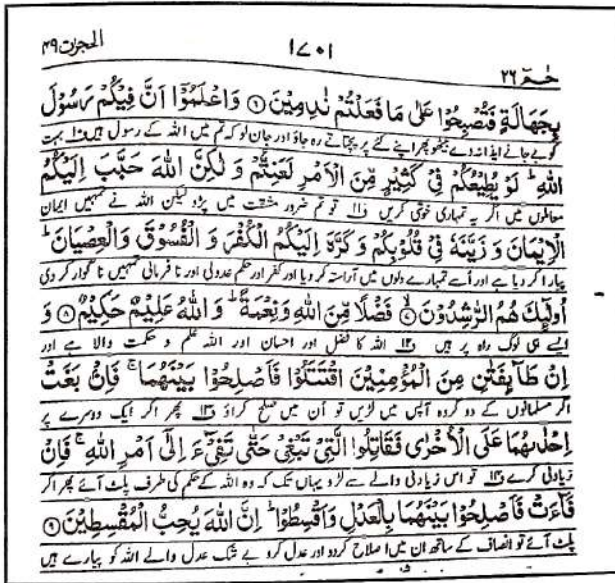 الحجرات ۴۹
۱۷۰۱
حٰمٓ ۲۶
بِجَهَالَةٍ فَتُصْبِحُوْا عَلٰى مَا فَعَلْتُمْ نٰدِمِيْنَ ۶ وَاعْلَمُوْٓا اَنَّ فِيْكُمْ رَسُوْلَ
کو بے جانے ایذا نہ دے بیٹھو پھر اپنے کئے پر پچھتاتے رہ جاؤ اور جان لو کہ تم میں اللہ کے رسول ہیں بہت
اللّٰهِ ؕ لَوْ يُطِيْعُكُمْ فِيْ كَثِيْرٍ مِّنَ الْاَمْرِ لَعَنِتُّمْ وَ لٰكِنَّ اللّٰهَ حَبَّبَ اِلَيْكُمُ
معاملوں میں اگر یہ تمہاری خوشی کریں ف۱۱ تو تم ضرور مشقت میں پڑو لیکن اللہ نے تمہیں ایمان
الْاِيْمَانَ وَ زَيَّنَهٗ فِيْ قُلُوْبِكُمْ وَ كَرَّهَ اِلَيْكُمُ الْكُفْرَ وَ الْفُسُوْقَ وَ الْعِصْيَانَ ؕ
پیارا کر دیا ہے اور اسے تمہارے دلوں میں آراستہ کر دیا اور کفر اور حکم عدولی اور نافرمانی تمہیں ناگوار کر دی
اُولٰٓئِكَ هُمُ الرّٰشِدُوْنَ ۷ فَضْلًا مِّنَ اللّٰهِ وَ نِعْمَةً ؕ وَ اللّٰهُ عَلِيْمٌ حَكِيْمٌ ۸ وَ
ایسے ہی لوگ راہ پر ہیں ف۱۲ اللہ کا فضل اور احسان اور اللہ علم و حکمت والا ہے اور
اِنْ طَآئِفَتٰنِ مِنَ الْمُؤْمِنِيْنَ اقْتَتَلُوْا فَاَصْلِحُوْا بَيْنَهُمَا ۚ فَاِنْۢ بَغَتْ
اگر مسلمانوں کے دو گروہ آپس میں لڑیں تو ان میں صلح کراؤ ف۱۳ پھر اگر ایک دوسرے پر
اِحْدٰىهُمَا عَلَى الْاُخْرٰى فَقَاتِلُوا الَّتِيْ تَبْغِيْ حَتّٰى تَفِيْٓءَ اِلٰٓى اَمْرِ اللّٰهِ ۚ فَاِنْ
زیادتی کرے ف۱۴ تو اس زیادتی والے سے لڑو یہاں تک کہ وہ اللہ کے حکم کی طرف پلٹ آئے پھر اگر
فَآءَتْ فَاَصْلِحُوْا بَيْنَهُمَا بِالْعَدْلِ وَ اَقْسِطُوْا ؕ اِنَّ اللّٰهَ يُحِبُّ الْمُقْسِطِيْنَ ۹
پلٹ آئے تو انصاف کے ساتھ ان میں اصلاح کردو اور عدل کرو بے شک عدل والے اللہ کو پیارے ہیں